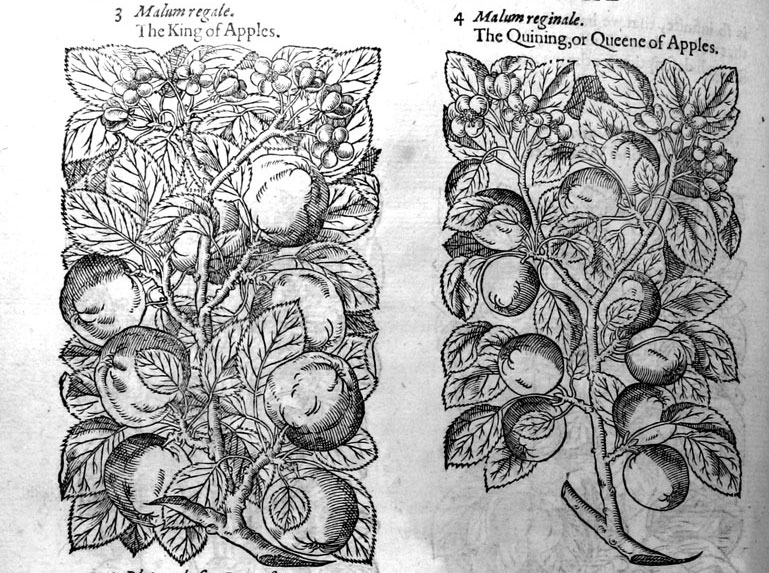 3 Malum regale.
The King of Apples.
4 Malum reginale.
The Quining, or Queene of Apples.